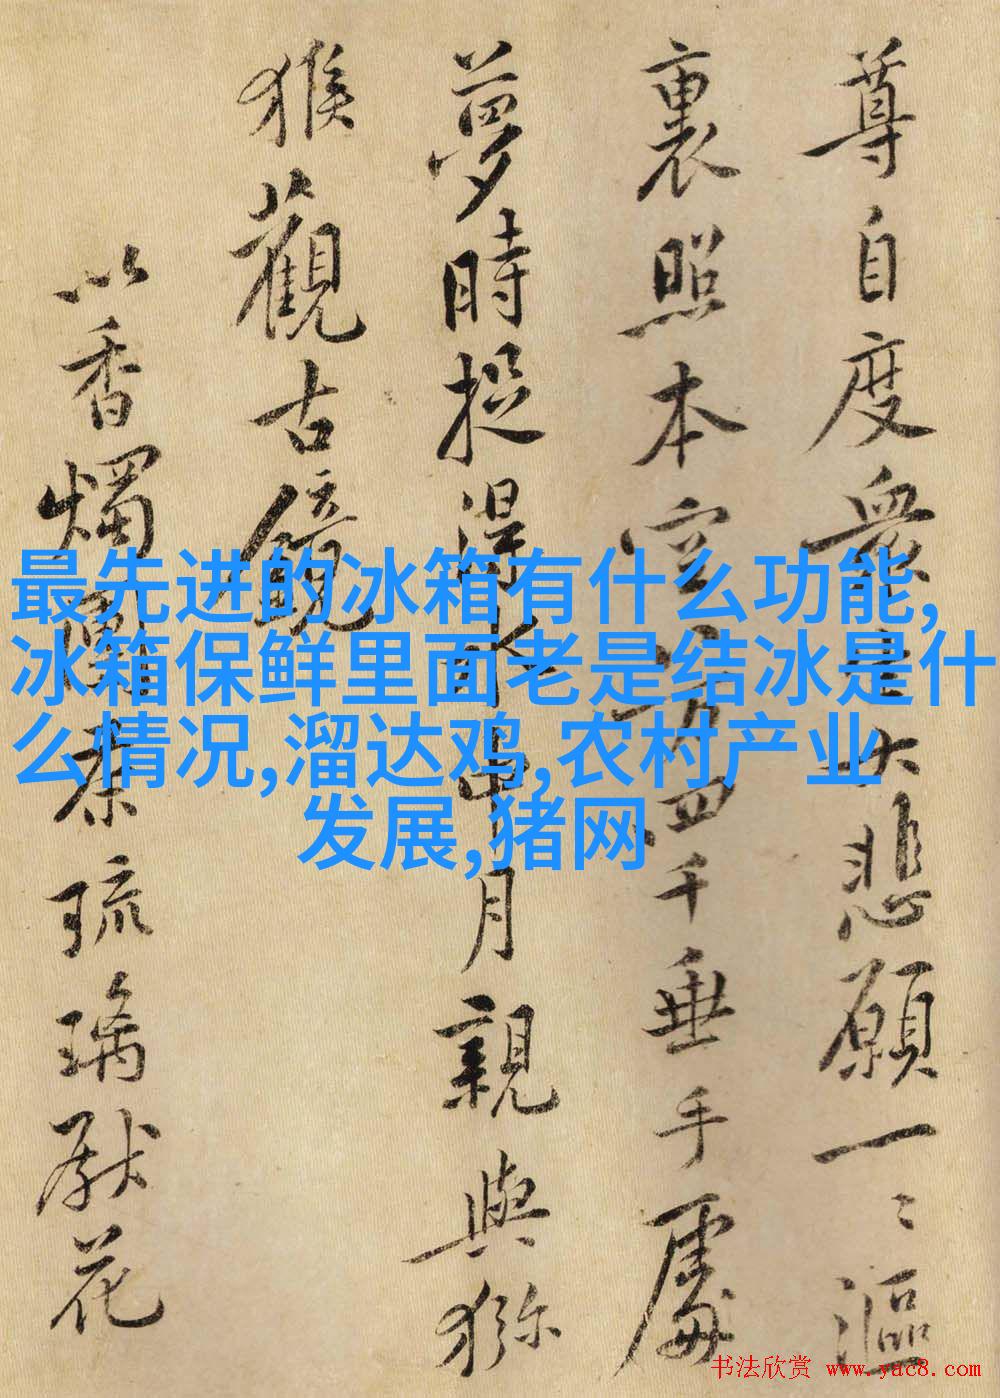 尊自度衆生大悲願一一漚
裏照本空八万四千垂手處
夢時捉得水中月親與獼
猴觀古鏡
以香燭團茶琉璃獻花
最先进的冰箱有什么功能,
冰箱保鲜里面老是结冰是什
么情况,溜达鸡,农村产业
发展,猪网
书法欣赏 www.yac8.com